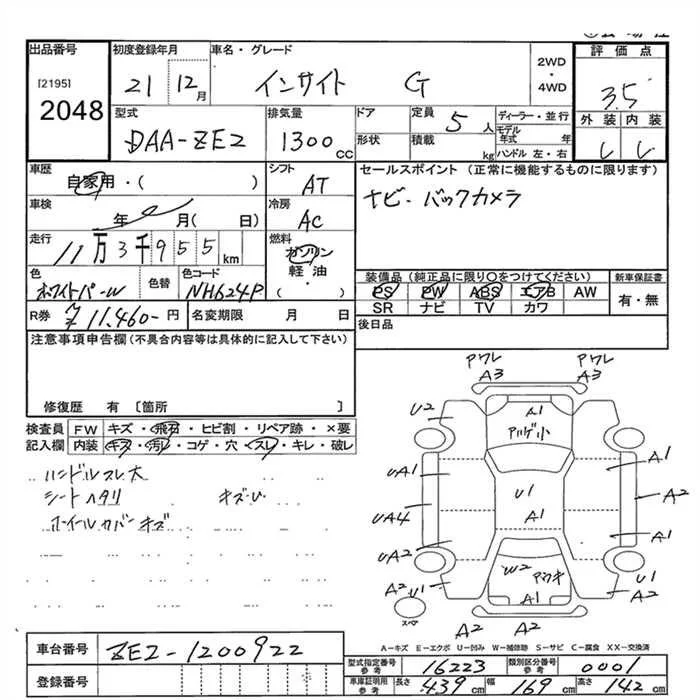 出品番号
[2195]
2048
初度登録年月
21 12月
車名・グレード
インサイト G
2WD
・
4WD
評価点
3.5
型式
DAA-ZE2
排気量
1300CC
ドア
形状
定員 5人
積載 kg
ディーラー・並行
モデル年式 年
ハンドル 左・右
外装 内装
車歴
自家用・( )
シフト
AT
セールスポイント (正常に機能するものに限ります)
ナビ・バックカメラ
車検
年 月( 日)
冷房
AC
走行
11万3千955km
燃料
ガソリン
軽・油
・( )
色
ホワイトパール
色替
色コード
NH624P
装備品 (純正品に限り○をつけてください)
PS PW ABS エアB AW
SR ナビ TV カワ
新車保証書
有・無
R券 11,460-円
名変期限 月 日
後日品
注意事項申告欄(不具合内容等は具体的に記入して下さい)
修復歴 有 〔箇所 〕
検査員記入欄
FW キズ・飛石・ヒビ割・リペア跡・×要
内装 キズ・汚レ・コゲ・穴・スレ・キレ・破レ
ハンドルスレ大
シートヘタリ キズ・U
ホイールカバーキズ
アワレ A3
アワレ A3
U2
A1
アルゲ小
UA1
A1
U1
A2
UA4
A1
A1
UA2
A2 U1
W2
アワキ
A1
U1
A2
スペア
A2
A2
A-キズ E-エクボ U-凹み W-補修跡 S-サビ C-腐食 XX-交換済
車台番号
ZE2-1200922
登録番号
型式指定番号参考 16223
類別区分番号参考 0001
車庫証明用参考 長さ 439cm 幅 169cm 高さ 142cm